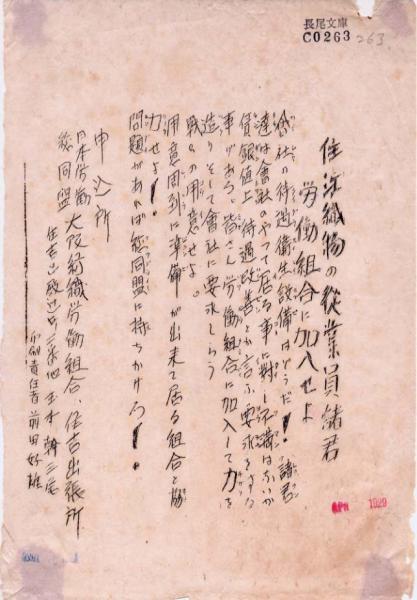 長尾文庫
C0263
263
住江織物の従業員諸君
労働組合に加入せよ
會社の待遇、衛生設備はどうだ! 諸君
達は會社のやって居る事に對し不満はないか
賃銀値上、待遇改善とか言ふ要求をする
事がある。皆さん労働組合に加入して力を
造りそして會社に要求しろう
戦への用意せよ。
用意周到に準備が出来て居る組合と協
力せよ!
問題があれば総同盟に持ちかけろ!
申込所
日本労働
総同盟 大阪紡織労働組合、住吉出張所
住吉区殿辻町
印刷責任者 前田好雄
APR 1929